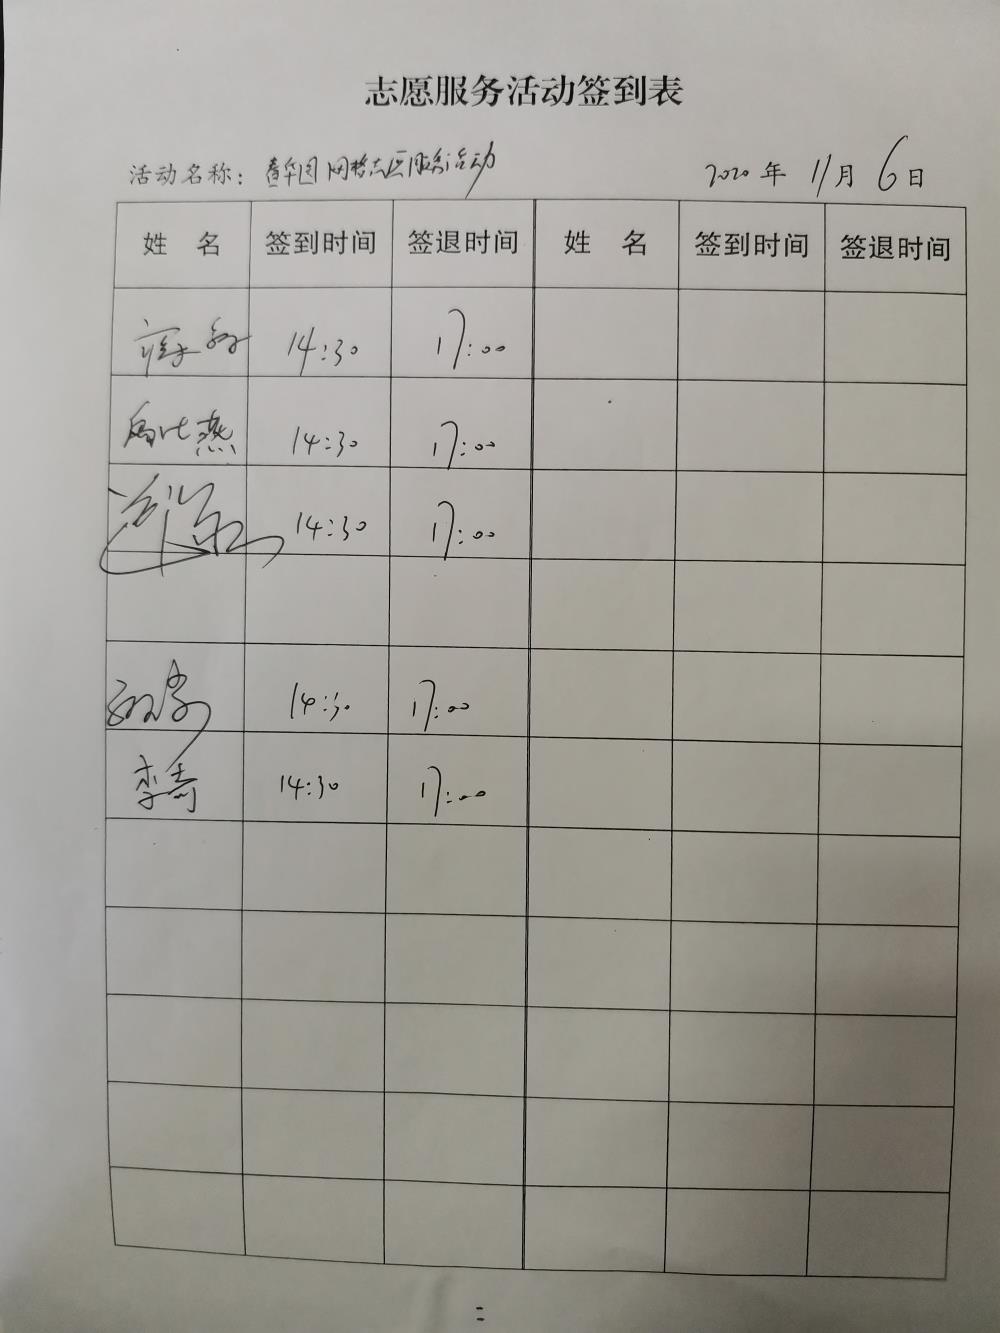 志愿服务活动签到表
活动名称： 网格志愿服务活动 2020年 11月 6日
姓 名 签到时间 签退时间 姓 名 签到时间 签退时间
14:30 17:00
燕 14:30 17:00
14:30 17:00
14:30 17:00
李 14:30 17:00